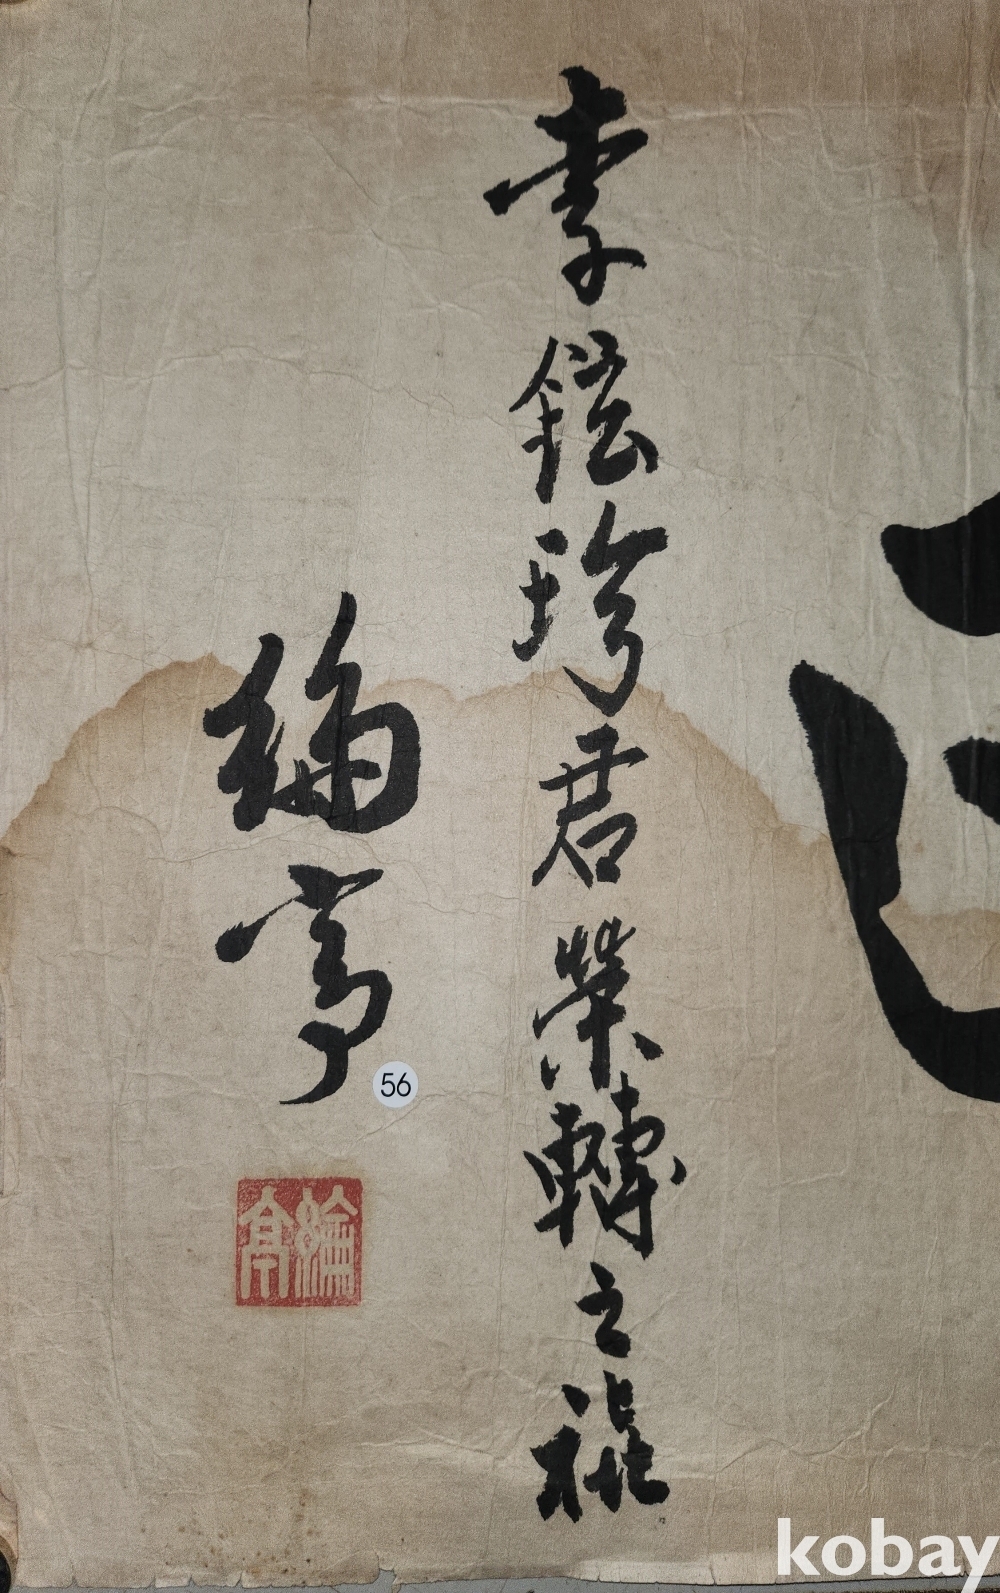 李鉉珍君榮轉之祺
綸亭
56
綸亭
kobay